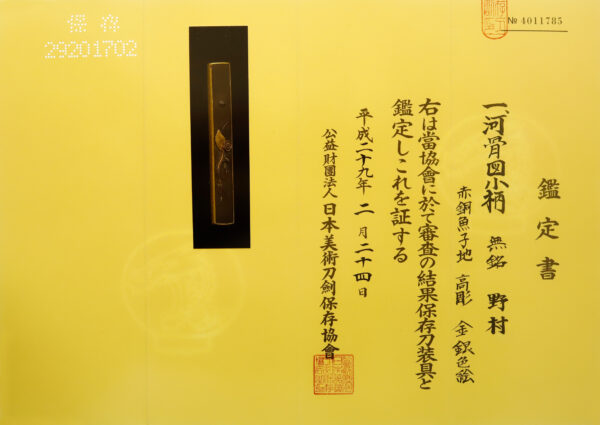 № 4011785
鑑定書
一、河骨図小柄 無銘 野村
赤銅魚子地 高彫 金銀色絵
右は當協會に於て審査の結果保存刀装具と
鑑定しこれを証する
平成二十九年 二月二十四日
公益財團法人 日本美術刀劍保存協會
保存
29201702